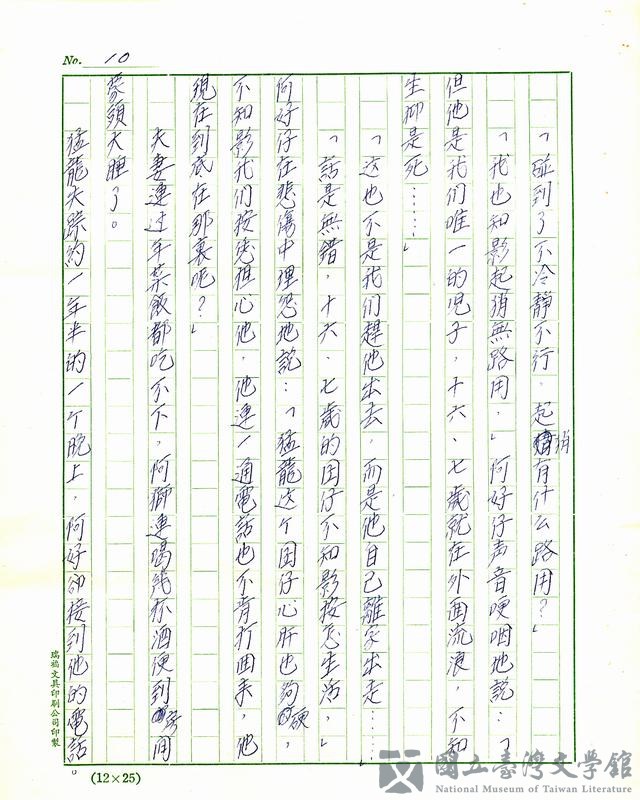 No. 10
「碰到了不冷靜不行，起猾有什么路用？」
「我也知影起猾無路用，」何好仔声音哽咽地說：「
但他是我们唯一的児子，十六、七歲就在外面流浪，不知
生抑是死……」
「这也不是我们趕他出去，而是他自己離家出走……
「話是無錯，十六、七歲的囝仔不知影按怎生活，」
何好仔在悲傷中埋怨地說：「猛龍这个囝仔心肝也夠硬，
不知影我们按怎担心他，他連一通電話也不肯打回来，他
現在到底在那裏呢？」
夫妻連过年菜飯都吃不下，阿獅連喝幾杯酒便到房间
蒙頭大睡了。
猛龍失踪約一年半的一个晚上，何好卻接到他的電話。
瑞福文具印刷公司印製
(12×25)
國立臺灣文學館
National Museum of Taiwan Literature